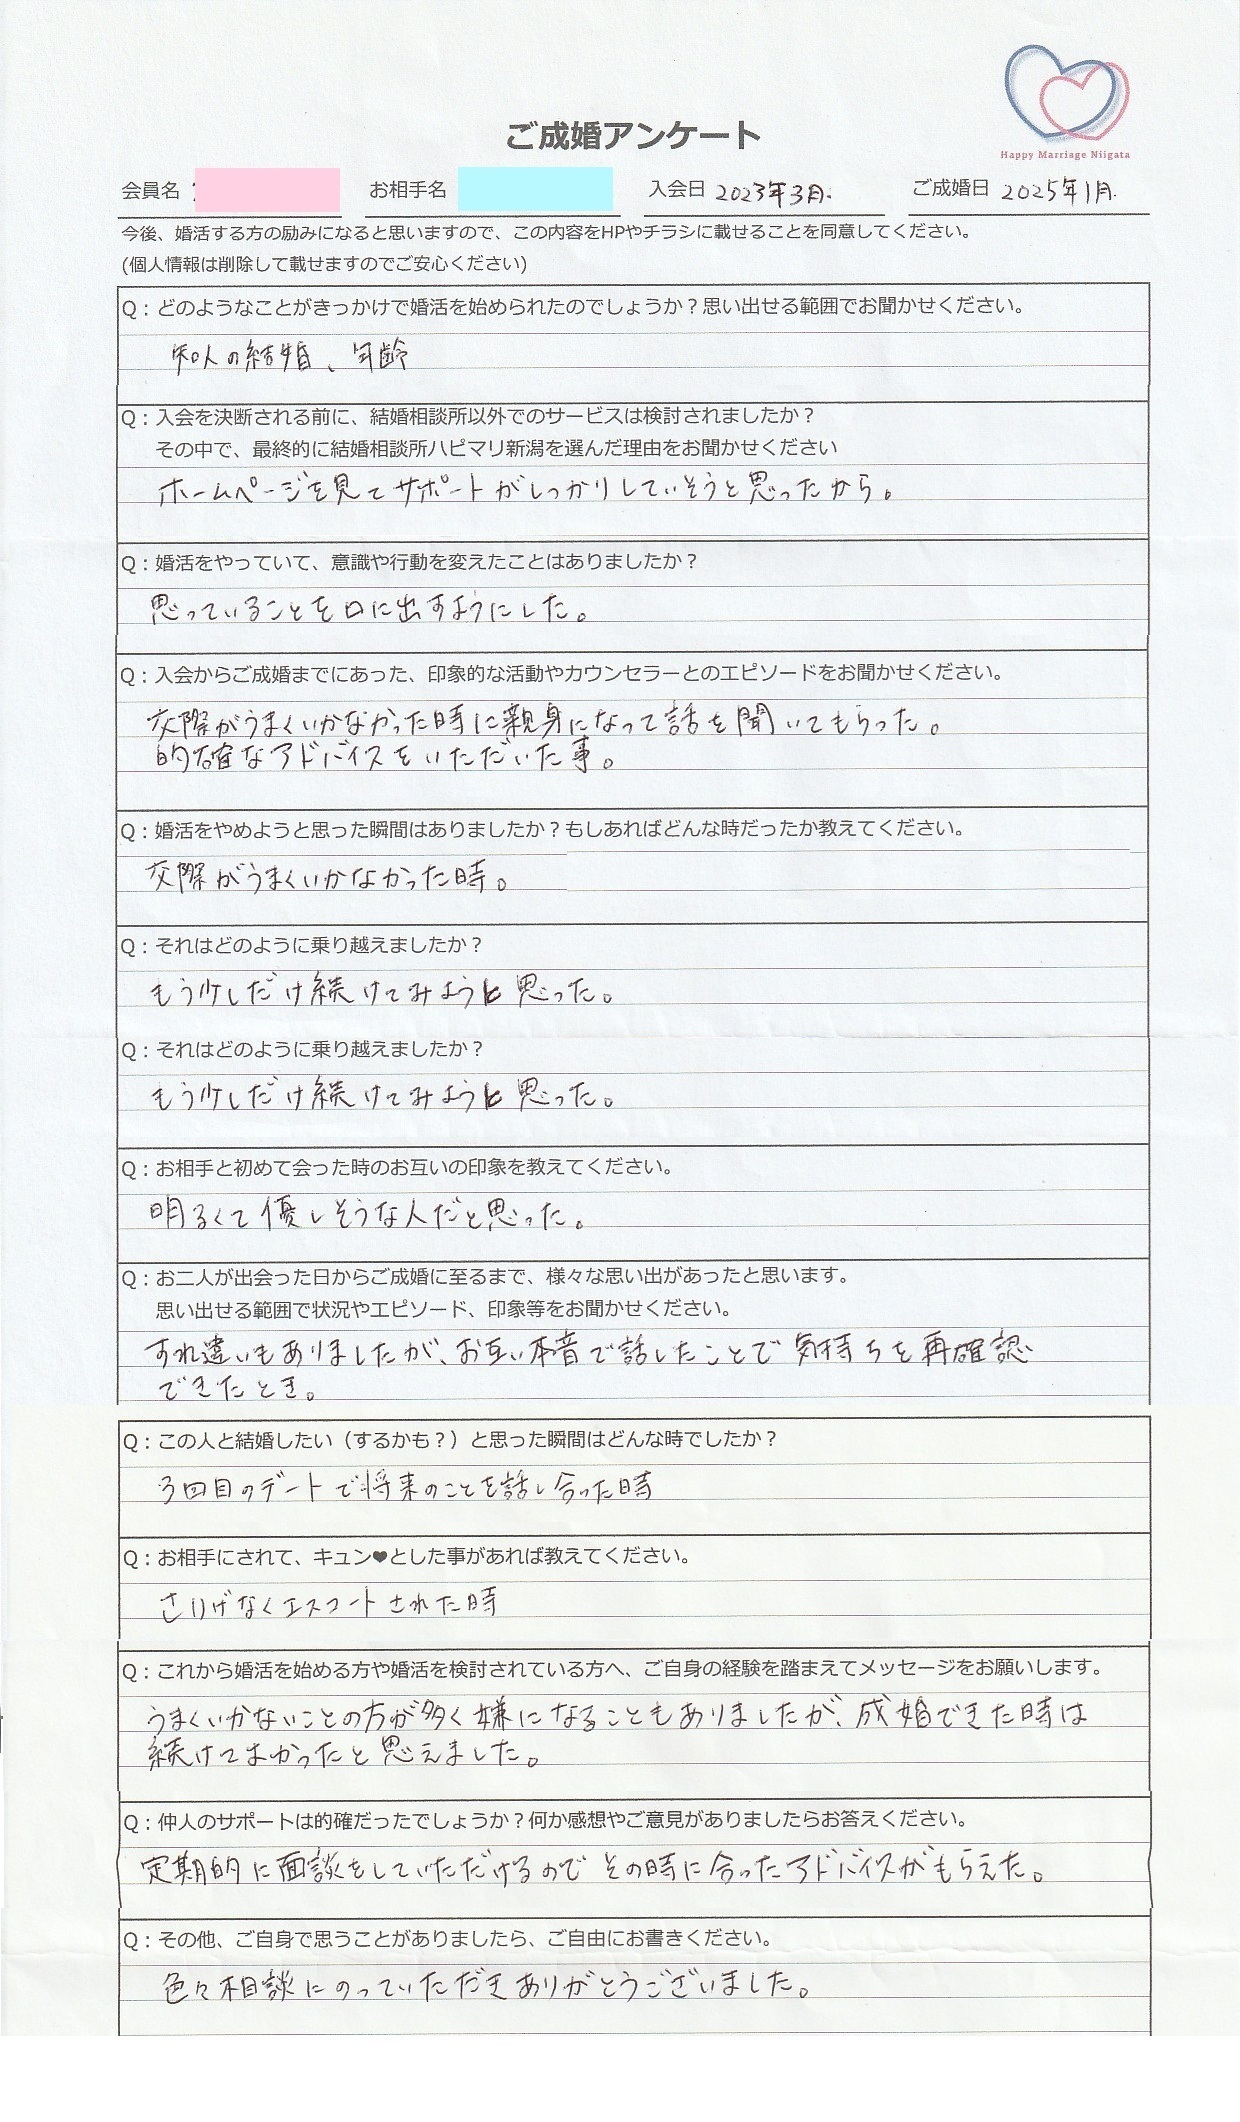 Happy Marriage Niigata
ご成婚アンケート
会員名 お相手名 入会日 2023年3月. ご成婚日 2025年1月.
今後、婚活する方の励みになると思いますので、この内容をHPやチラシに載せることを同意してください。
(個人情報は削除して載せますのでご安心ください)
Q：どのようなことがきっかけで婚活を始められたのでしょうか？思い出せる範囲でお聞かせください。
知人の結婚、年齢
Q：入会を決断される前に、結婚相談所以外でのサービスは検討されましたか？
その中で、最終的に結婚相談所ハピマリ新潟を選んだ理由をお聞かせください
ホームページを見てサポートがしっかりしていそうと思ったから。
Q：婚活をやっていて、意識や行動を変えたことはありましたか？
思っていることを口に出すようにした。
Q：入会からご成婚までにあった、印象的な活動やカウンセラーとのエピソードをお聞かせください。
交際がうまくいかなかった時に親身になって話を聞いてもらった。
的確なアドバイスをいただいた事。
Q：婚活をやめようと思った瞬間はありましたか？もしあればどんな時だったか教えてください。
交際がうまくいかなかった時。
Q：それはどのように乗り越えましたか？
もう少しだけ続けてみようと思った。
Q：それはどのように乗り越えましたか？
もう少しだけ続けてみようと思った。
Q：お相手と初めて会った時のお互いの印象を教えてください。
明るくて優しそうな人だと思った。
Q：お二人が出会った日からご成婚に至るまで、様々な思い出があったと思います。
思い出せる範囲で状況やエピソード、印象等をお聞かせください。
すれ違いもありましたが、お互い本音で話したことで気持ちを再確認
できたとき。
Q：この人と結婚したい（するかも？）と思った瞬間はどんな時でしたか？
3回目のデートで将来のことを話し合った時
Q：お相手にされて、キュン♥とした事があれば教えてください。
さりげなくエスコートされた時
Q：これから婚活を始める方や婚活を検討されている方へ、ご自身の経験を踏まえてメッセージをお願いします。
うまくいかないことの方が多く嫌になることもありましたが、成婚できた時は
続けてよかったと思えました。
Q：仲人のサポートは的確だったでしょうか？何か感想やご意見がありましたらお答えください。
定期的に面談をしていただけるので その時に合ったアドバイスがもらえた。
Q：その他、ご自身で思うことがありましたら、ご自由にお書きください。
色々相談にのっていただきありがとうございました。